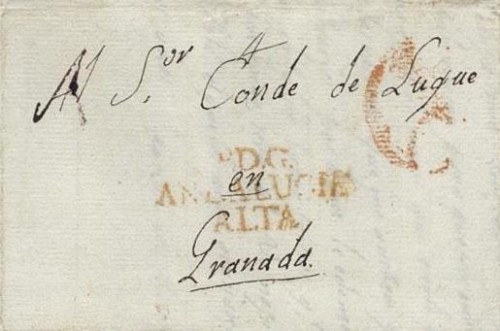 Al S.or Conde de Luque
D.G.
en
ANDALUCIA
ALTA
Granada.